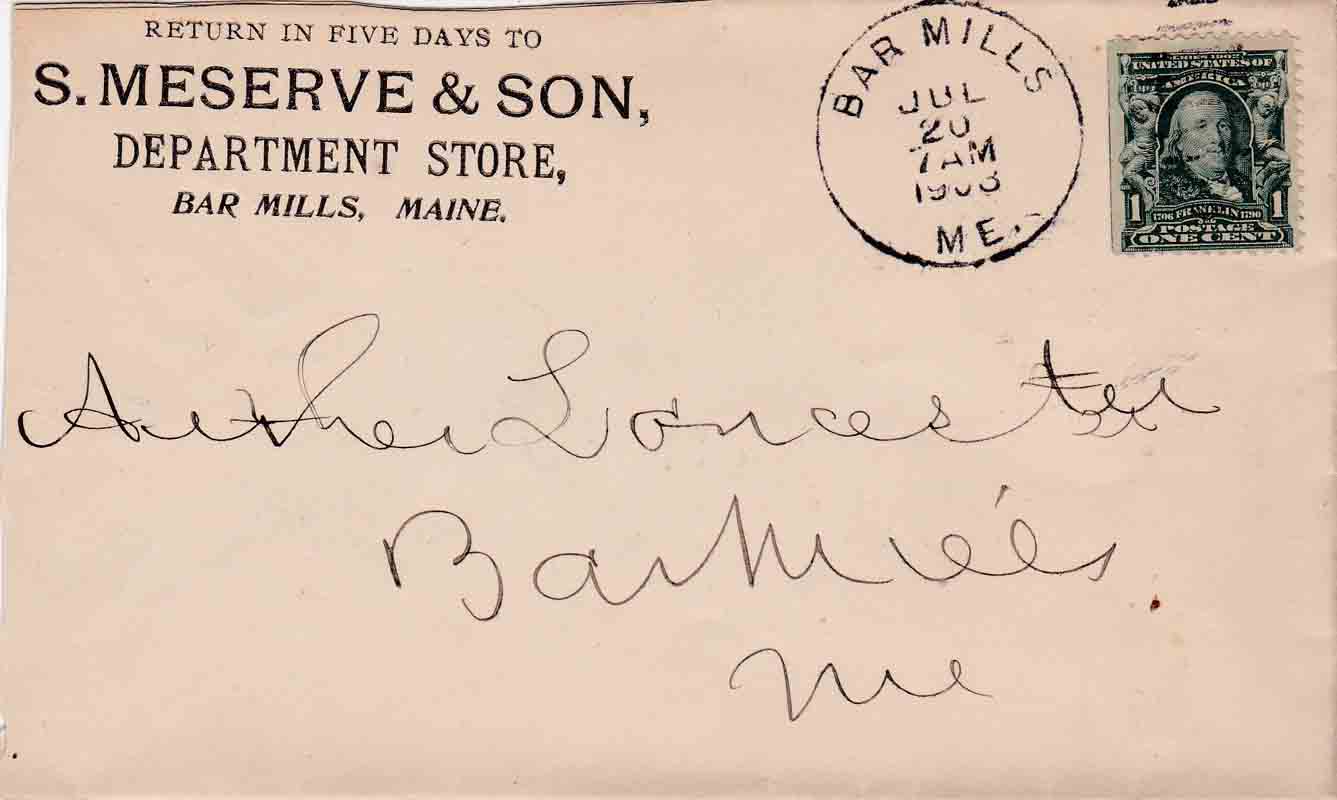 RETURN IN FIVE DAYS TO
S. MESERVE & SON,
DEPARTMENT STORE,
BAR MILLS, MAINE.
BAR MILLS
JUL
20
7 AM
1908
ME.
UNITED STATES OF
AMERICA
1 1706 FRANKLIN 1790 1
POSTAGE
ONE CENT
Arther Loncaster
Bar Mills
Me